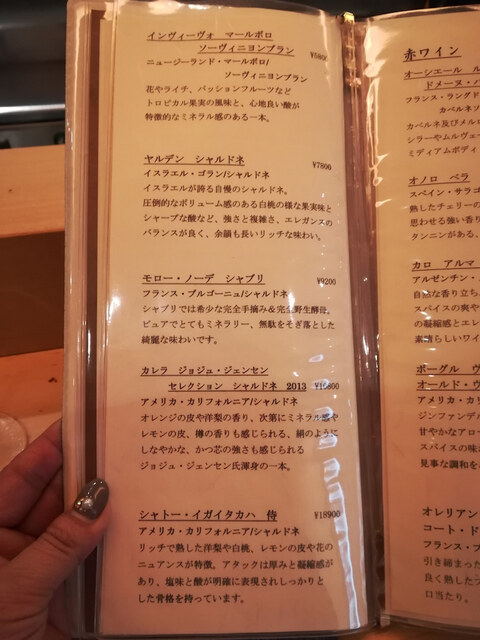 インヴィーヴォ マールボロ
ソーヴィニヨンブラン ¥5800
ニュージーランド・マールボロ/
ソーヴィニヨンブラン
花やライチ、パッションフルーツなど
トロピカル果実の風味と、心地良い酸が
特徴的なミネラル感のある一本。
ヤルデン シャルドネ ¥7800
イスラエル・ゴラン/シャルドネ
イスラエルが誇る自慢のシャルドネ。
圧倒的なボリューム感のある白桃の様な果実味と
シャープな酸など、強さと複雑さ、エレガンスの
バランスが良く、余韻も長いリッチな味わい。
モロー・ノーデ シャブリ ¥9200
フランス・ブルゴーニュ/シャルドネ
シャブリでは希少な完全手摘み&完全野生酵母。
ピュアでとてもミネラリー、無駄をそぎ落とした
綺麗な味わいです。
カレラ ジョジュ・ジェンセン
セレクション シャルドネ 2013 ¥10800
アメリカ・カリフォルニア/シャルドネ
オレンジの皮や洋梨の香り、次第にミネラル感や
レモンの皮、樽の香りも感じられる、絹のように
しなやかな、かつ芯の強さも感じられる
ジョジュ・ジェンセン氏渾身の一本。
シャトー・イガイタカハ 侍 ¥18900
アメリカ・カリフォルニア/シャルドネ
リッチで熟した洋梨や白桃、レモンの皮や花の
ニュアンスが特徴。アタックは厚みと凝縮感が
あり、塩味と酸が明確に表現されしっかりと
した骨格を持っています。
赤ワイン
オーシエール ル
ドメーヌ・バ
フランス・ラングド
カベルネソ
カベルネ及びメル
シラーやムルヴェー
ミディアムボディ
オノロ ベラ
スペイン・サラゴ
熟したチェリーの
思わせる強い香り
タンニンがある、
カロ アルマ
アルゼンチン・
自然な香り立ち
スパイスの爽や
の凝縮感とエレ
素晴らしいワイ
ボーグル ヴ
オールド・ヴ
アメリカ・カリ
ジンファンデル
甘やかなアロー
スパイスの味
見事な調和を
オレリアン
コート・ド
フランス・ブ
引き締まった
良く熟した
口当たり。